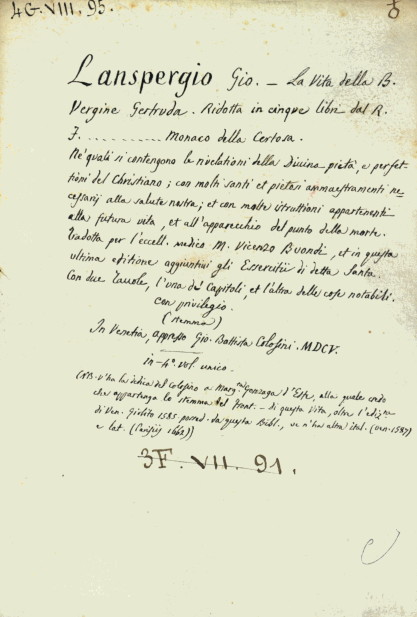 4G. VIII. 95.
Lanspergio Gio. – La Vita della B.
Vergine Gertruda. Ridotta in cinque libri dal R.
F. ........... Monaco della Certosa.
Ne quali si contengono le rivelationi della Divina pietà, e perfet-
tioni del Christiano; con molti santi et pietosi ammaestramenti ne-
cessarij alla salute nostra; et con molte istruttioni appartenenti
alla futura vita, et all'apparecchio del punto della morte.
Tradotta per l'eccell. medico M. Vicenzo Buondì, et in questa
ultima editione aggiuntivi gli Essercitii di detta Santa.
Con due Tavole, l'una de' Capitoli, et l'altra delle cose notabili.
con privilegio.
(stemma)
In Venetia, appresso Gio. Battista Colosini. MDCV.
in-4° vol. unico.
(NB. V'ha la dedica del Colosino a Marg.ta Gonzaga d'Este, alla quale credo
che appartenga lo stemma del front. – di questa Vita, oltre l'ediz.ne
di Ven. Giolito 1585 possed. da questa Bibl., ve n'ha altra ital. (Ven. 1587)
e lat. (Parisij 1662))
3F. VII. 91.